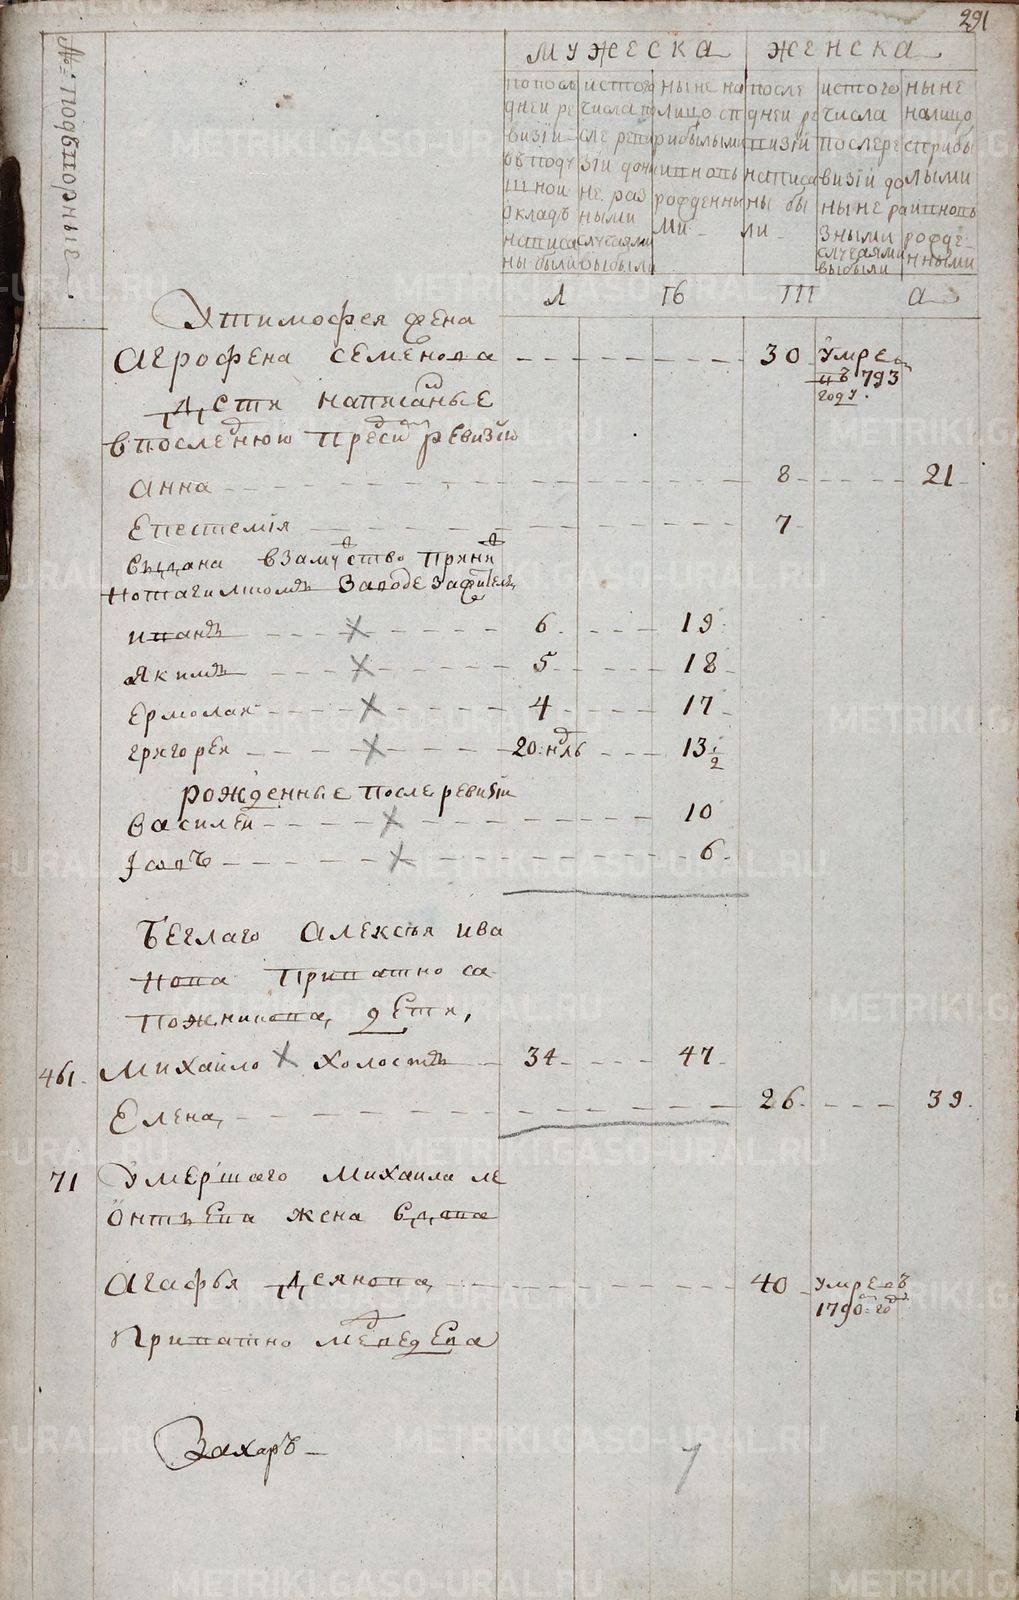 291
№ подворные
МУЖЕСКА
ЖЕНСКА
по посл
дней ре
визїи
въ поду
шной
окладъ
написа
ны были
истого
числа по
сле реви
зїи до
не раз
ными
случаями
выбыли
ныне на
лицо сп
рибылыми
ивновь
рожденны
ми
после
дней ре
визїй
написа
ны бы
ли
истого
числа
после ре
визїи до
ныне ра
зными
случаями
выбыли
ныне
налицо
сприбы
лыми
ивновь
рожде
нными
Л
ГБ
ГП
а
Утимофея жена
Агрофена семенова 30 Умре
въ 793
году
Дети написанные
впоследнюю пред сим ревизїю
Анна 8 21
Епестемїя 7
выдана взамужство прежде
нотагилскомъ заводе зажителя
иванъ 6 19
Якимъ 5 18
Ермолаи 4 17
григореи 20 нед 13 1/2
рожденные после ревизїи
василеи 10
Їовъ 6
Беглаго Алексѣя ива
нова Приватно са
пожникова, дети,
461 Михаило холостъ 34 47
Елена, 26 39
71 Умершаго Михаила ле
онтьева жена вдова
Агафья Деянова, 40 умре въ
1790 год
Приватно медведева
Захаръ